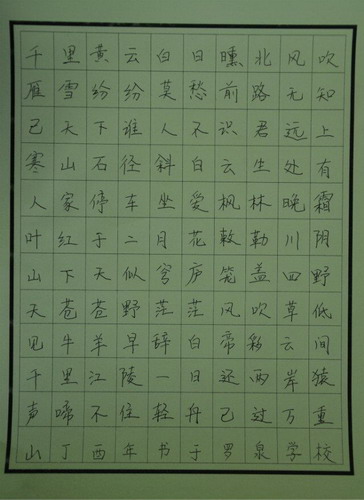 千里黄云白日曛北风吹
雁雪纷纷莫愁前路无知
己天下谁人不识君远上
寒山石径斜白云生处有
人家停车坐爱枫林晚霜
叶红于二月花敕勒川阴
山下天似穹庐笼盖四野
天苍苍野茫茫风吹草低
见牛羊早辞白帝彩云间
千里江陵一日还两岸猿
声啼不住轻舟已过万重
山丁酉年书于罗泉学校